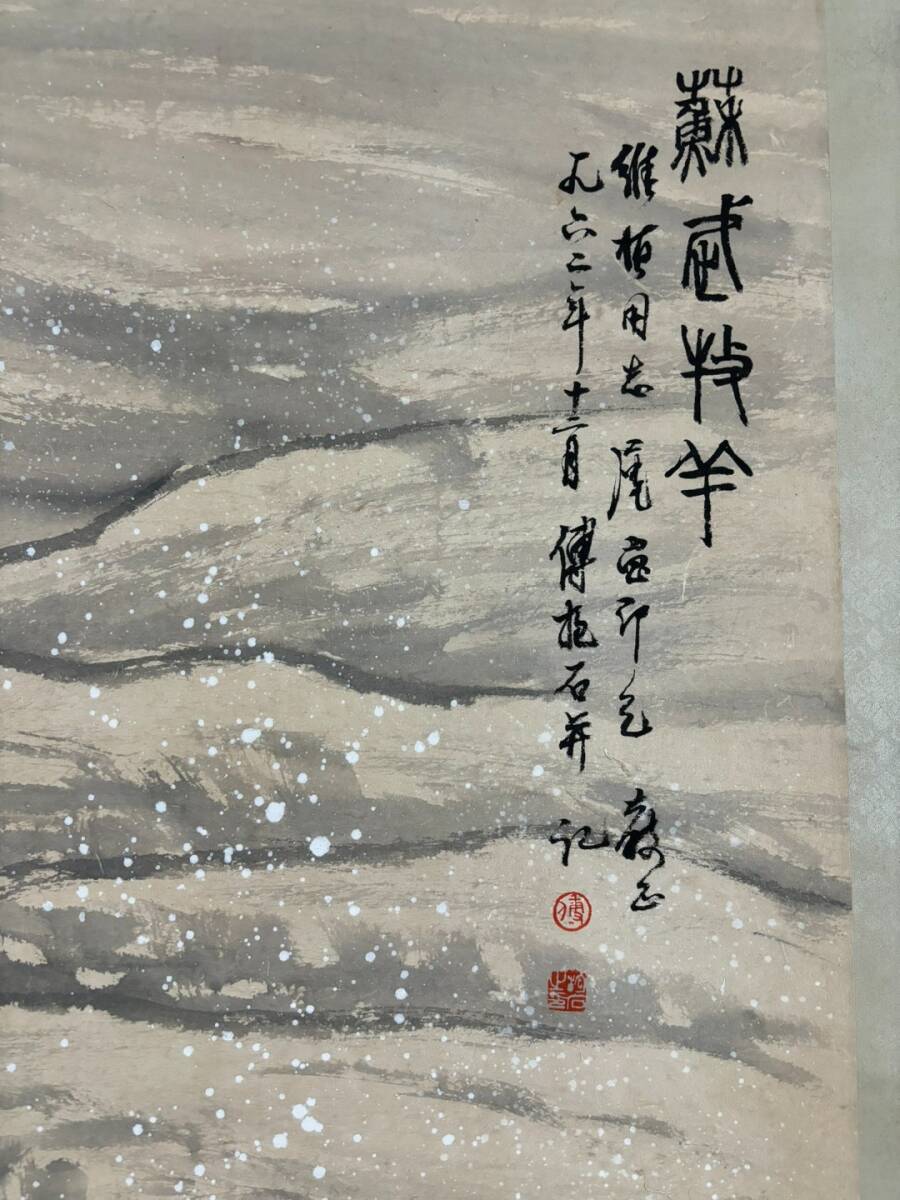 蘇武牧羊
維同志屬畫即乞 教正
一九六二年十二月 傅抱石并記
傅
抱石之印